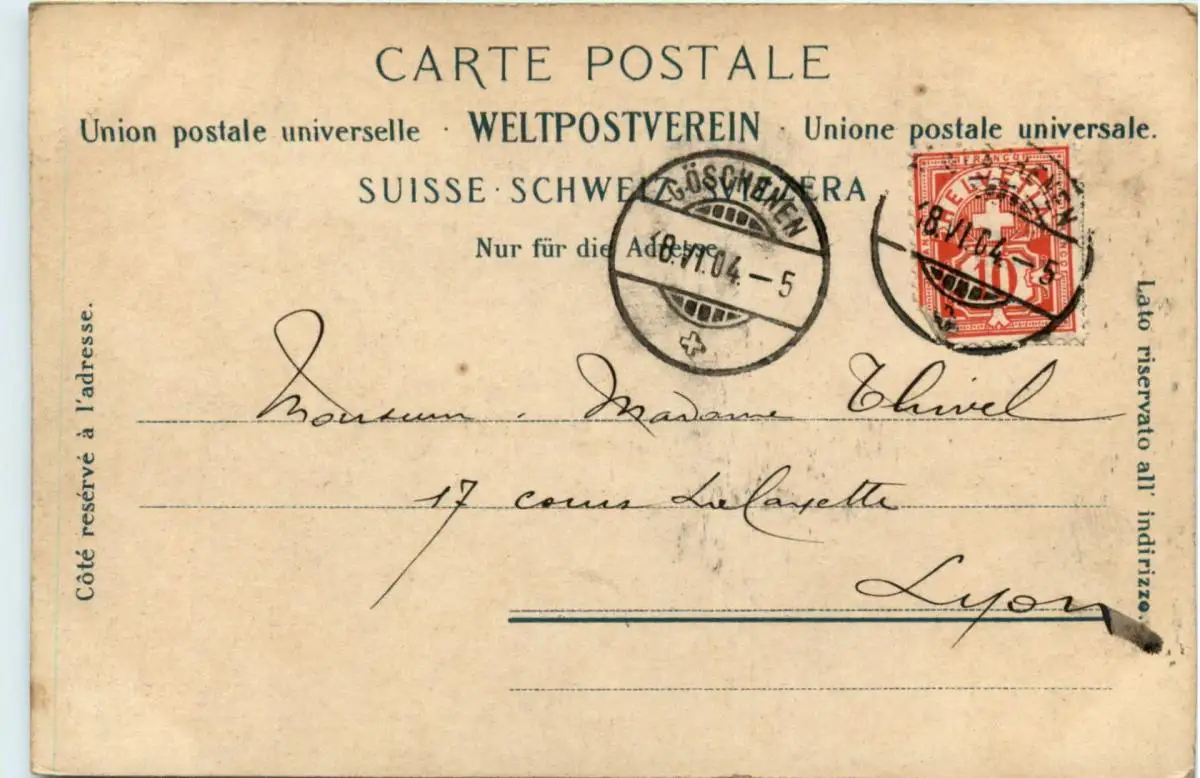 CARTE POSTALE
Union postale universelle · WELTPOSTVEREIN · Unione postale universale.
SUISSE · SCHWEIZ · SVIZZERA
Nur für die Adresse
GÖSCHENEN
18.VI.04.–5
FRANCO
HELVETIA
10
18.VI.04.–5
Côté resérvé à l'adresse.
Lato riservato all' indirizzo.
Monsieur . Madame Thivel
17 cours Lafayette
Lyon